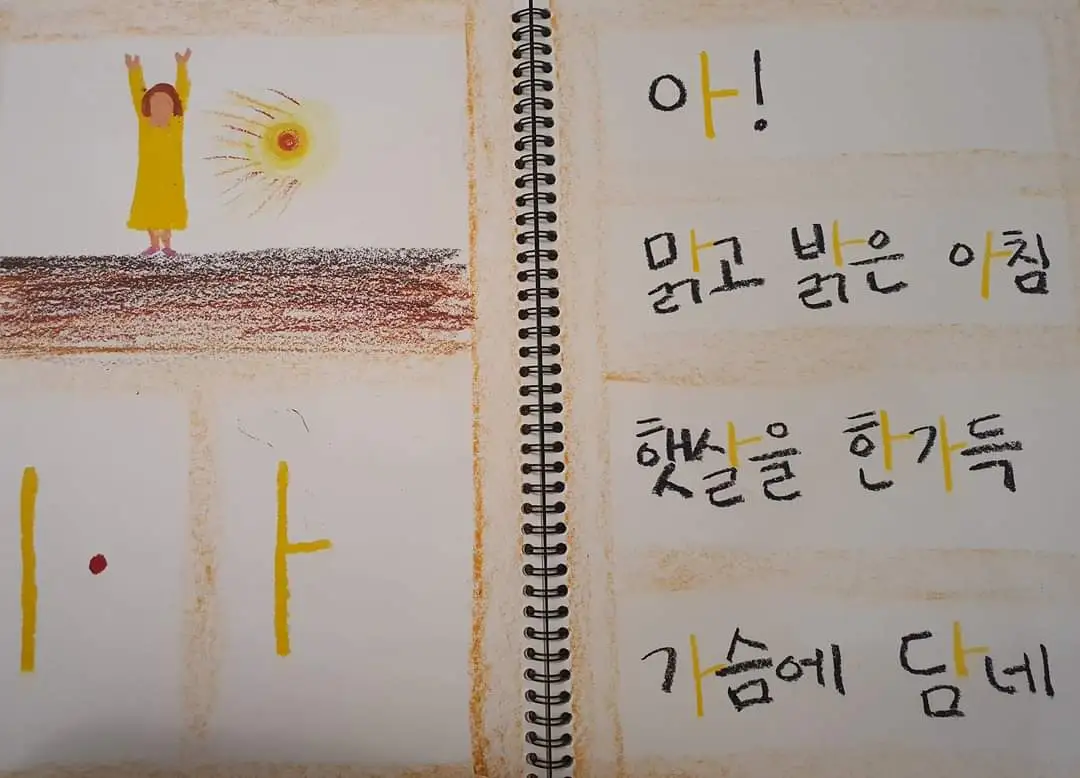 ㅣ · ㅏ
아!
맑고 밝은 아침
햇살을 한가득
가슴에 담네